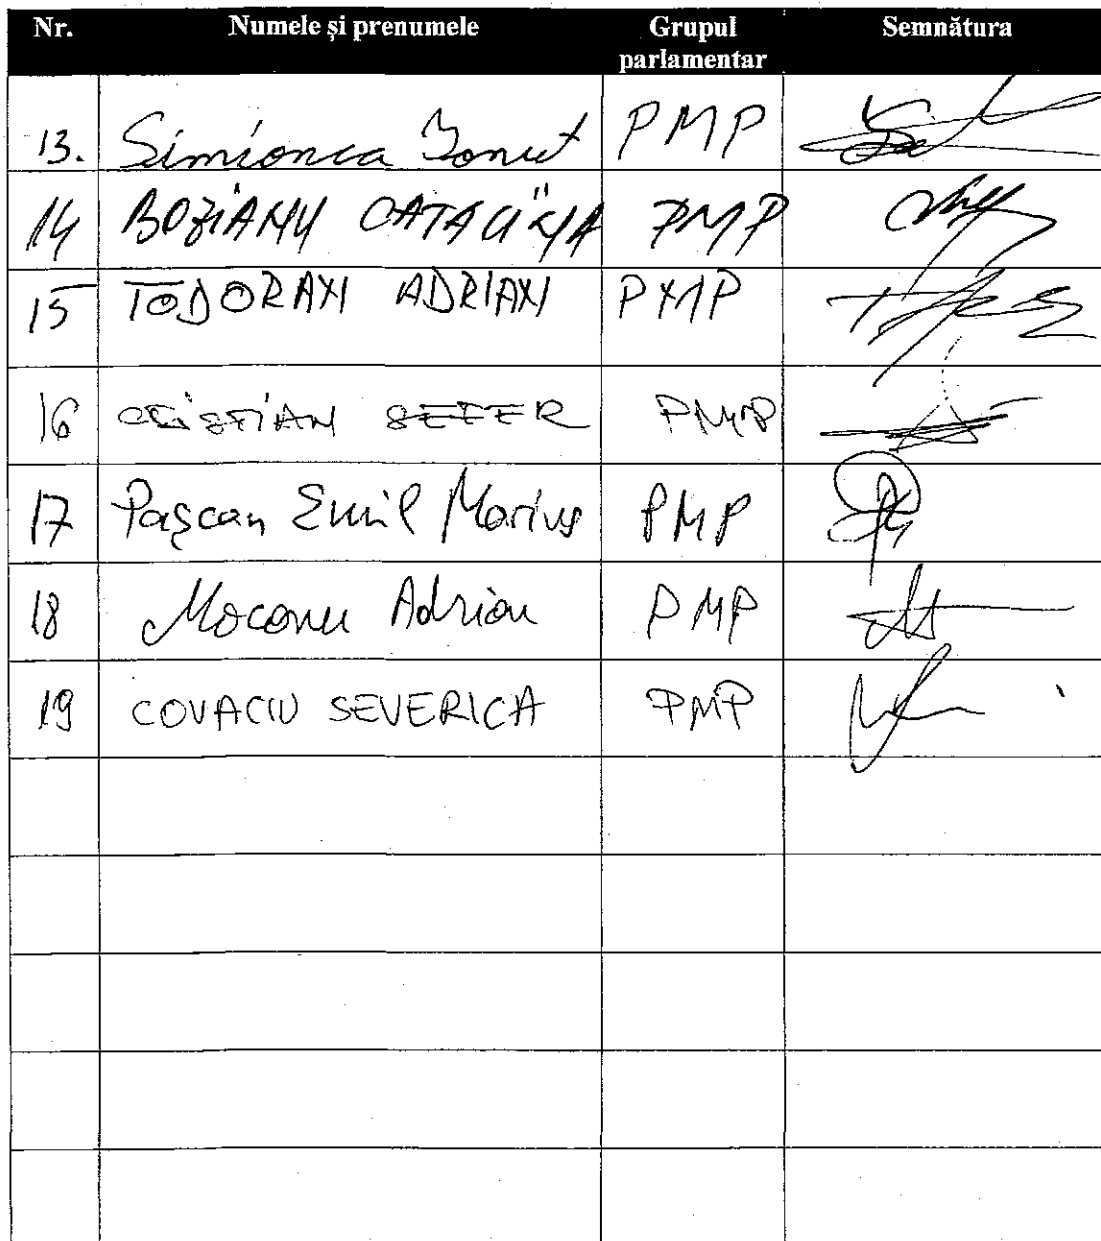 Nr. Numele și prenumele Grupul parlamentar Semnătura
13. Simionca Ionut PMP
14 BOZIANU CATALINA PMP
15 TODORAN ADRIAN PMP
16 CRISTIAN SEFER PMP
17 Pașcan Emil Marius PMP
18 Mocanu Adrian PMP
19 COVACIU SEVERICA PMP